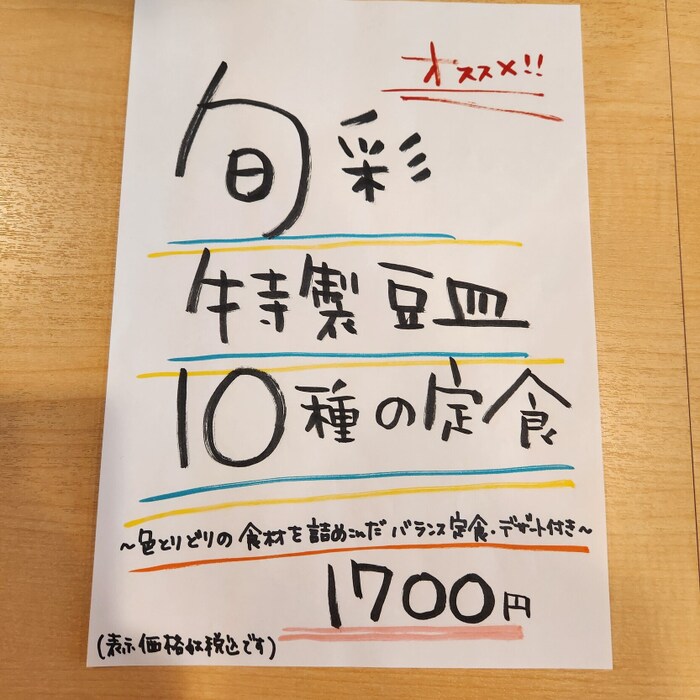 オススメ!!
旬彩
特製豆皿
10種の定食
~色とりどりの食材を詰めこんだバランス定食・デザート付き~
1700円
(表示価格は税込です)